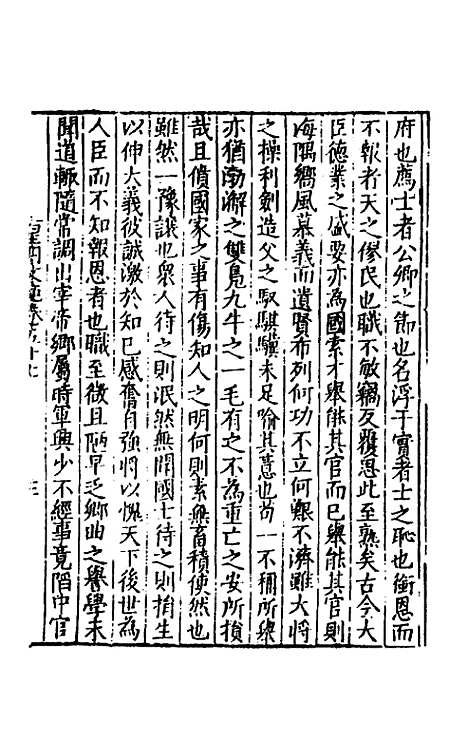 府也薦士者公卿之節也名浮于實者士之恥也銜恩而
不報者天之僇民也職不敏竊反覆思此至熟矣古今大
臣德業之盛要亦為國索才舉能其官而已舉能其官則
海隅嚮風慕義而遺賢布列何功不立何艱不濟雖大將
之操利劍造父之馭騏驥未足喻其慧也苟一不稱所舉
亦猶渤澥之雙鳧九牛之一毛有之不為重亡之安所損
哉且僨國家之事有傷知人之明何則素無畜積使然也
雖然一豫讓也眾人待之則泯然無聞國士待之則捐生
以伸大義彼誠激於知已感奮自強將以愧天下後世為
人臣而不知報恩者也職至微且陋早乏鄉曲之譽學未
聞道輒隨常調出宰帝鄉屬時軍興少不經事竟階中官
三